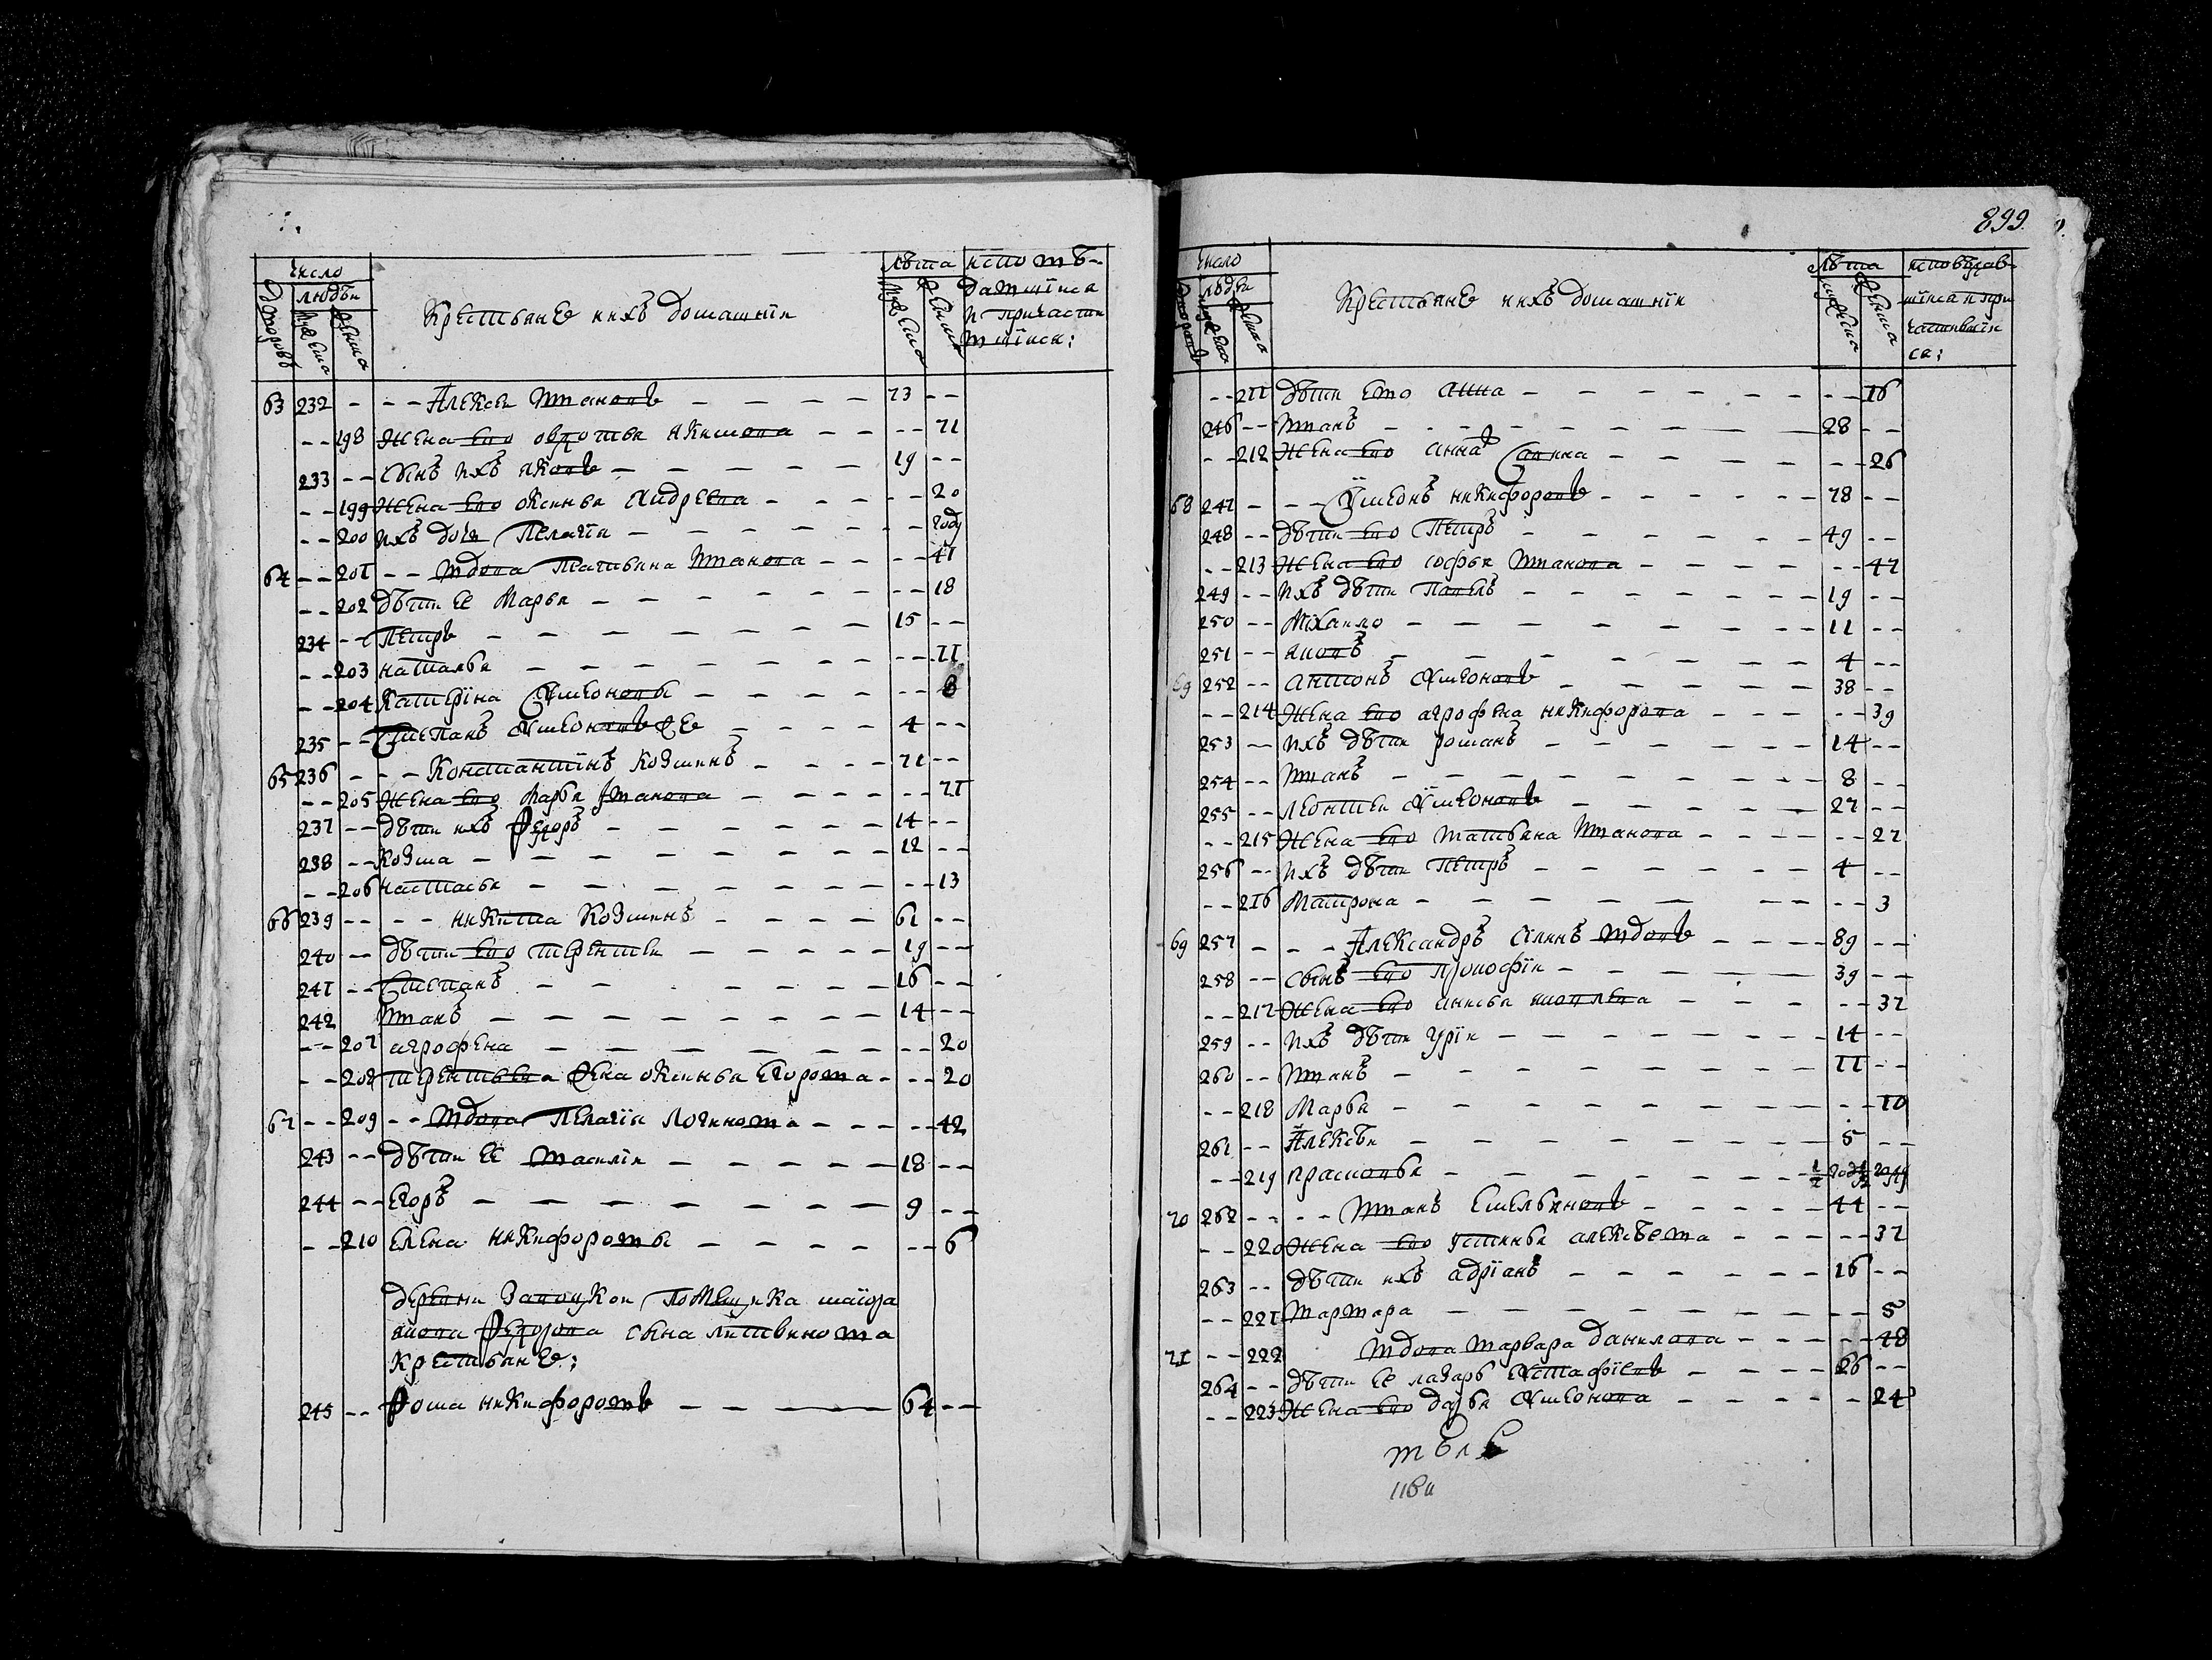 число лѣта испо вѣ-
дворовъ людѣи муж ска женска Крестьяне и ихъ домашнїи муж ска женска давшїися
и причастив
шїися:
63 232 - - - Алексѣи Ивановъ - - - - 73 - -
- - 198 Жена ево овдотья Акимова - - - - 71
233 - - сынъ ихъ яковъ - - - - - 19 - -
- - 199 Жена ево оксинья Андреева - - - - - 20
- - 200 ихъ дочь Пелагїя - - - - - - году
64 - - 201 - - вдова Татьяна Иванова - - - - 47
- - 202 дѣти ее Марья - - - - - - - - 18
234 - - Петръ - - - - - - - 15 - -
- - 203 наталья - - - - - - - - - 11
- - 204 Катерїна Симеонова - - - - - - 8
235 - - Степанъ Симеоновъ же - - - - 4 - -
65 236 - - - Константїнъ Козминъ - - - - 71 - -
- - 205 Жена ево Марья Иванова - - - - - - 71
237 - - дѣти ихъ Федоръ - - - - - - 14 - -
238 - - Козма - - - - - - - - 12 - -
- - 206 настасья - - - - - - - - - 13
66 239 - - - - никита Козминъ - - - - 61 - -
240 - - дѣти ево терентеи - - - - - 19 - -
241 - - Степанъ - - - - - - - 16 - -
242 Иванъ - - - - - - - - 14 - -
- - 207 агрофена - - - - - - - - 20
- - 208 терентьева жена оксинья Егорова - - - 20
67 - - 209 - - вдова Пелагїя Логинова - - - - - 42
243 - - дѣти ее василїи - - - - - 18 - -
244 - - Егоръ - - - - - - - - 9 - -
- - 210 Елена никифорова - - - - - - 6
деревни помещика маїора
Федорова сына литвинова
крестьяне:
245 - - Фома никифоровъ - - - 64 - -
899.
число лѣта исповѣдав-
дворовъ людѣи мужеска женска Крестьяне и ихъ домашнїи мужеска женска шїися и при
частившїи
ся:
- - 211 дѣти Ево анна - - - - - - - 16
246 - - Иванъ - - - - - - - 28 - -
- - 212 Жена ево анна Савина - - - - - - 26
68 247 - - - Симеонъ никифоровъ - - - - - 78 - -
248 - - дѣти ево Петръ - - - - - - 49 - -
- - 213 Жена ево софья Иванова - - - - - - 47
249 - - ихъ дѣти Павелъ - - - - - - 19 - -
250 - - Михаило - - - - - - - - 11 - -
251 - - яковъ - - - - - - - - 4 - -
69 252 - - антонъ Симеоновъ - - - - - 38 - -
- - 214 Жена ево агрофена никифорова - - - - - 39
253 - - ихъ дѣти романъ - - - - - - 14 - -
254 - - Иванъ - - - - - - - - 8 - -
255 - - леонтеи Симеоновъ - - - - - 27 - -
- - 215 Жена ево татьяна Иванова - - - - - - 27
256 - - ихъ дѣти Петръ - - - - - - 4 - -
- - 216 Матрона - - - - - - - - - 3
69 257 - - - Александръ Силинъ вдовъ - - - - 89 - -
258 - - сынъ ево прокофїи - - - - - 39 - -
- - 217 Жена ево анисья яковлева - - - - - 37
259 - - ихъ дѣти Урїи - - - - - - - 14 - -
260 - - Иванъ - - - - - - - - 11 - -
- - 218 Марья - - - - - - - - - 10
261 - - Алексѣи - - - - - - - - 5 - -
- - 219 прасковья - - - - - - - 1/2
70 262 - - - - Иванъ Емельяновъ - - - - - 44 - -
- - 220 Жена ево устинья алексѣева - - - - - 37
263 - - дѣти ихъ адрїанъ - - - - - - 16 - -
- - 221 варвара - - - - - - - - - 5
71 - - 222 вдова варвара данилова - - - - - 48
264 - - дѣти ее лазарь Естафїевъ - - - - 26 - -
- - 223 Жена ево дарья Симеонова - - - - - - 24